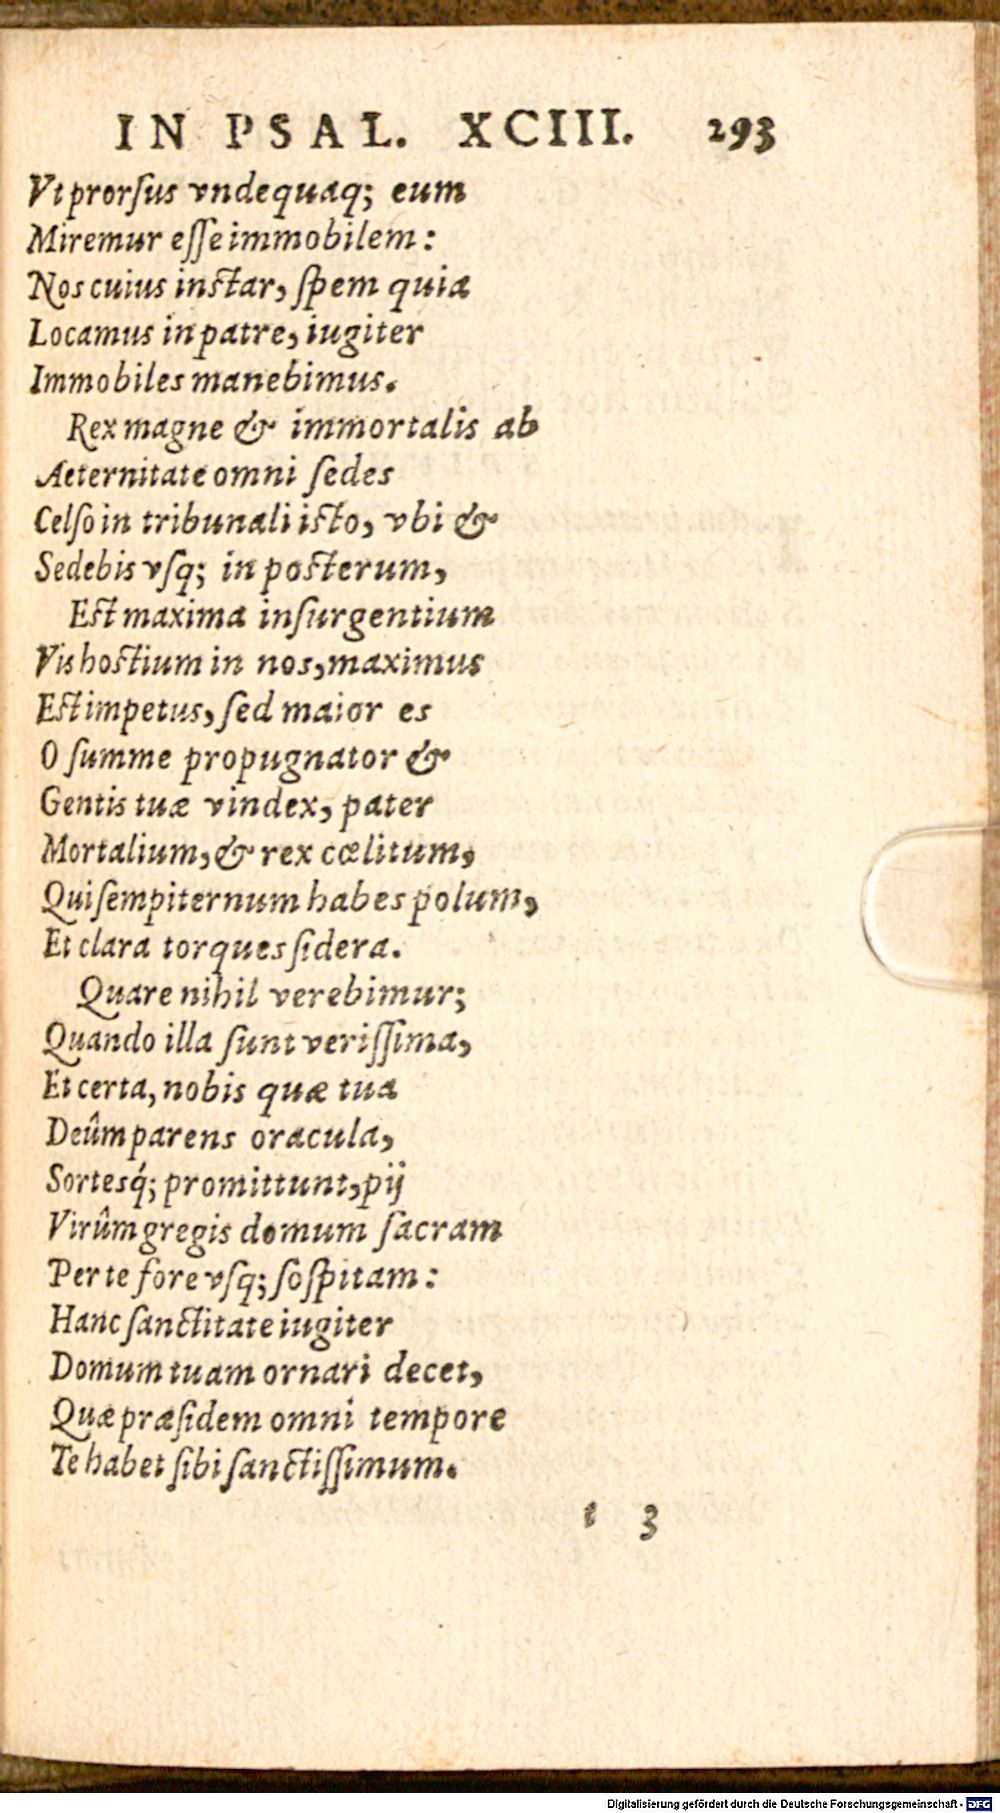 IN PSAL. XCIII. 293
Vt prorſus vndequaq; eum
Miremur eſſe immobilem:
Nos cuius inſtar, ſpem quia
Locamus in patre, iugiter
Immobiles manebimus.
Rex magne & immortalis ab
Aeternitate omni ſedes
Celſo in tribunali iſto, vbi &
Sedebis vſq; in poſterum,
Eſt maxima inſurgentium
Vis hoſtium in nos, maximus
Eſt impetus, ſed maior es
O ſumme propugnator &
Gentis tuæ vindex, pater
Mortalium, & rex cœlitum,
Qui ſempiternum habes polum,
Et clara torques ſidera.
Quare nihil verebimur;
Quando illa ſunt veriſſima,
Et certa, nobis quæ tua
Deûm parens oracula,
Sortesq́; promittunt, pij
Virûm gregis domum ſacram
Per te fore vſq; ſoſpitam:
Hanc ſanctitate iugiter
Domum tuam ornari decet,
Quæ præſidem omni tempore
Te habet ſibi ſanctiſſimum.
t 3
Digitalisierung gefördert durch die Deutsche Forschungsgemeinschaft - DFG